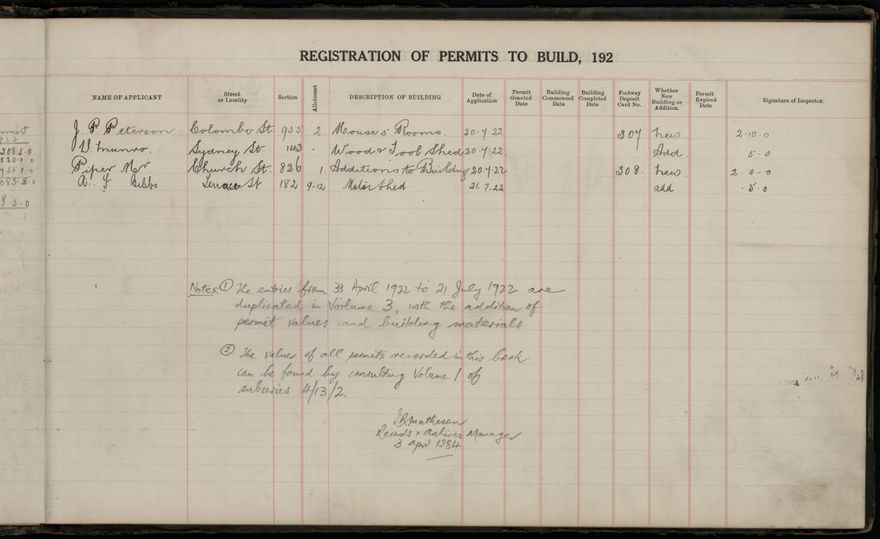 REGISTRATION OF PERMITS TO BUILD, 192
NAME OF APPLICANT Street or Locality Section Allotment DESCRIPTION OF BUILDING Date of Application Permit Granted Date Building Commenced Date Building Completed Date Footway Deposit Card No. Whether New Building or Addition. Permit Expired Date Signature of Inspector.
J. P. Peterson Colombo St. 955 2. House 5 Rooms. 20-7-22 307 new. 2-10-0
Munro. Sydney St. - Wood & Tool Shed 20-7-22. Add. 5-0
Piper Church St. 826 1. Additions to Building 20-7-22 308. new. 2-0-0
A. Gibbs Terrace St 182 9-12 Motor Shed 21.7.22 add 5.0
Notes ① The entries from April 1922 to 21 July 1922 are
duplicated in Volume 3, with the addition of
permit values and building materials
② The values of all permits recorded in this book
can be found by consulting Volume 1 of
subseries 4/13/2.
Matheson
Records & Archives Manager
3 April 1984